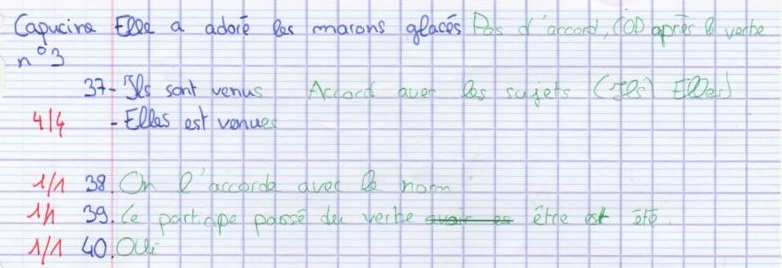 Capucine Elle a adoré les marons glacés Pas d'accord, COD après le verbe
n°3
37- Ils sont venus Accord avec les sujets (Ils) Elles)
4/4 - Elles est venues
1/1 38. On l'accorde avec le nom
1/1 39. Le participe passé du verbe avoir es être est été.
1/1 40. Oui